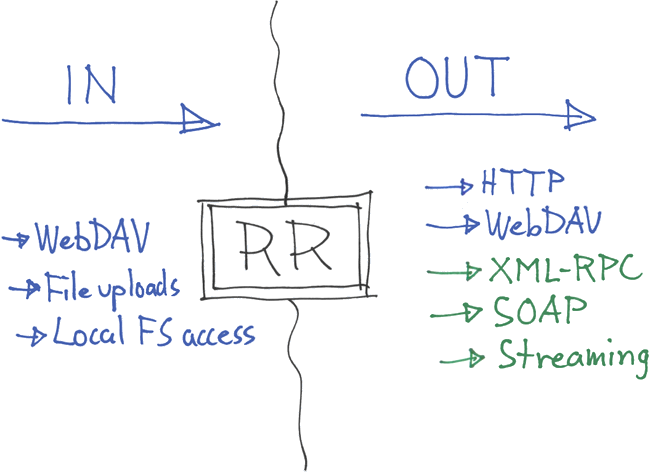 IN
OUT
RR
WebDAV
File uploads
Local FS access
HTTP
WebDAV
XML-RPC
SOAP
Streaming